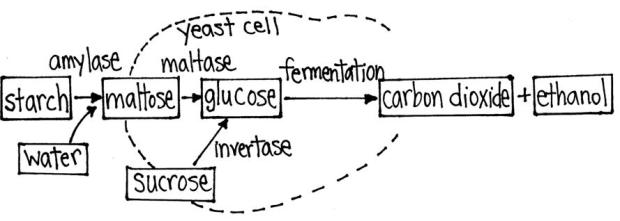 yeast cell
amylase
maltase
fermentation
starch
maltose
glucose
carbon dioxide + ethanol
water
invertase
sucrose